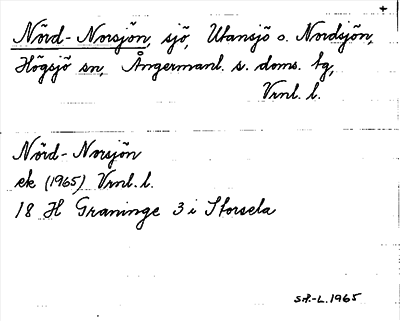 +
Nörd-Norsjön, sjö, Utansjö o. Nordsjön,
Högsjö sn, Ångermanl. s. doms. tg,
Vrnl. l.
Nörd-Norsjön
ek (1965) Vrnl. l.
18 H Graninge 3 i Storsela
S.P.-L. 1965